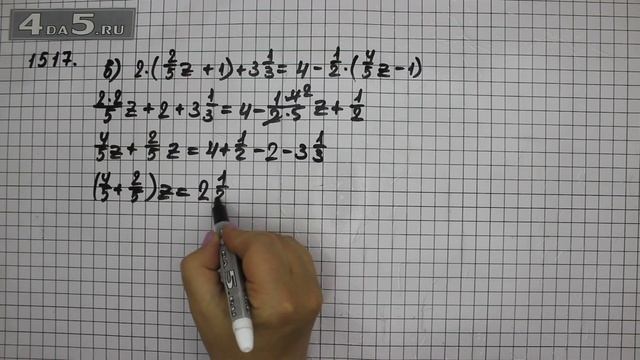 4DA5.RU
1517. в) 2·(2/5 z + 1) + 3 1/3 = 4 - 1/2 · (4/5 z - 1)
2·2/5 z + 2 + 3 1/3 = 4 - 1·4²/2·5 z + 1/2
4/5 z + 2/5 z = 4 + 1/2 - 2 - 3 1/3
(4/5 + 2/5) z = 2 1/2